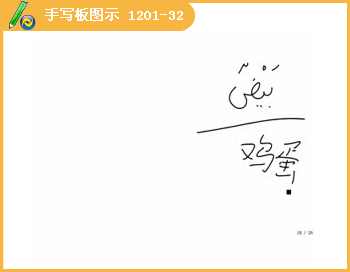 手写板图示 1201-32
بيض
鸡蛋